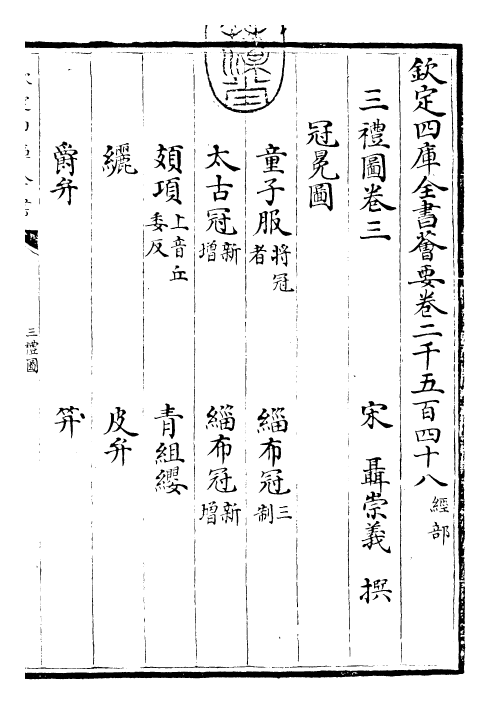 欽定四庫全書薈要卷二千五百四十八 經部
三禮圖卷三 宋 聶崇義 撰
冠冕圖
童子服 將冠者 緇布冠 三制
太古冠 新增 緇布冠 新增
頍項 上音丘委反 青組纓
纚 皮弁
爵弁 笄
三禮圖